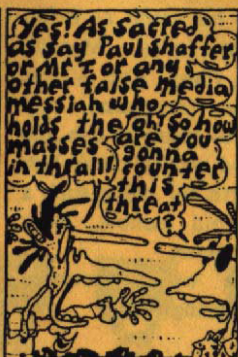 Yes! As sacred
as say Paul Shaffer
or Mr T or any
other false media
messiah who
holds the
masses
in thrall!
Oh! So how
are you
gonna
counter
this
threat
?